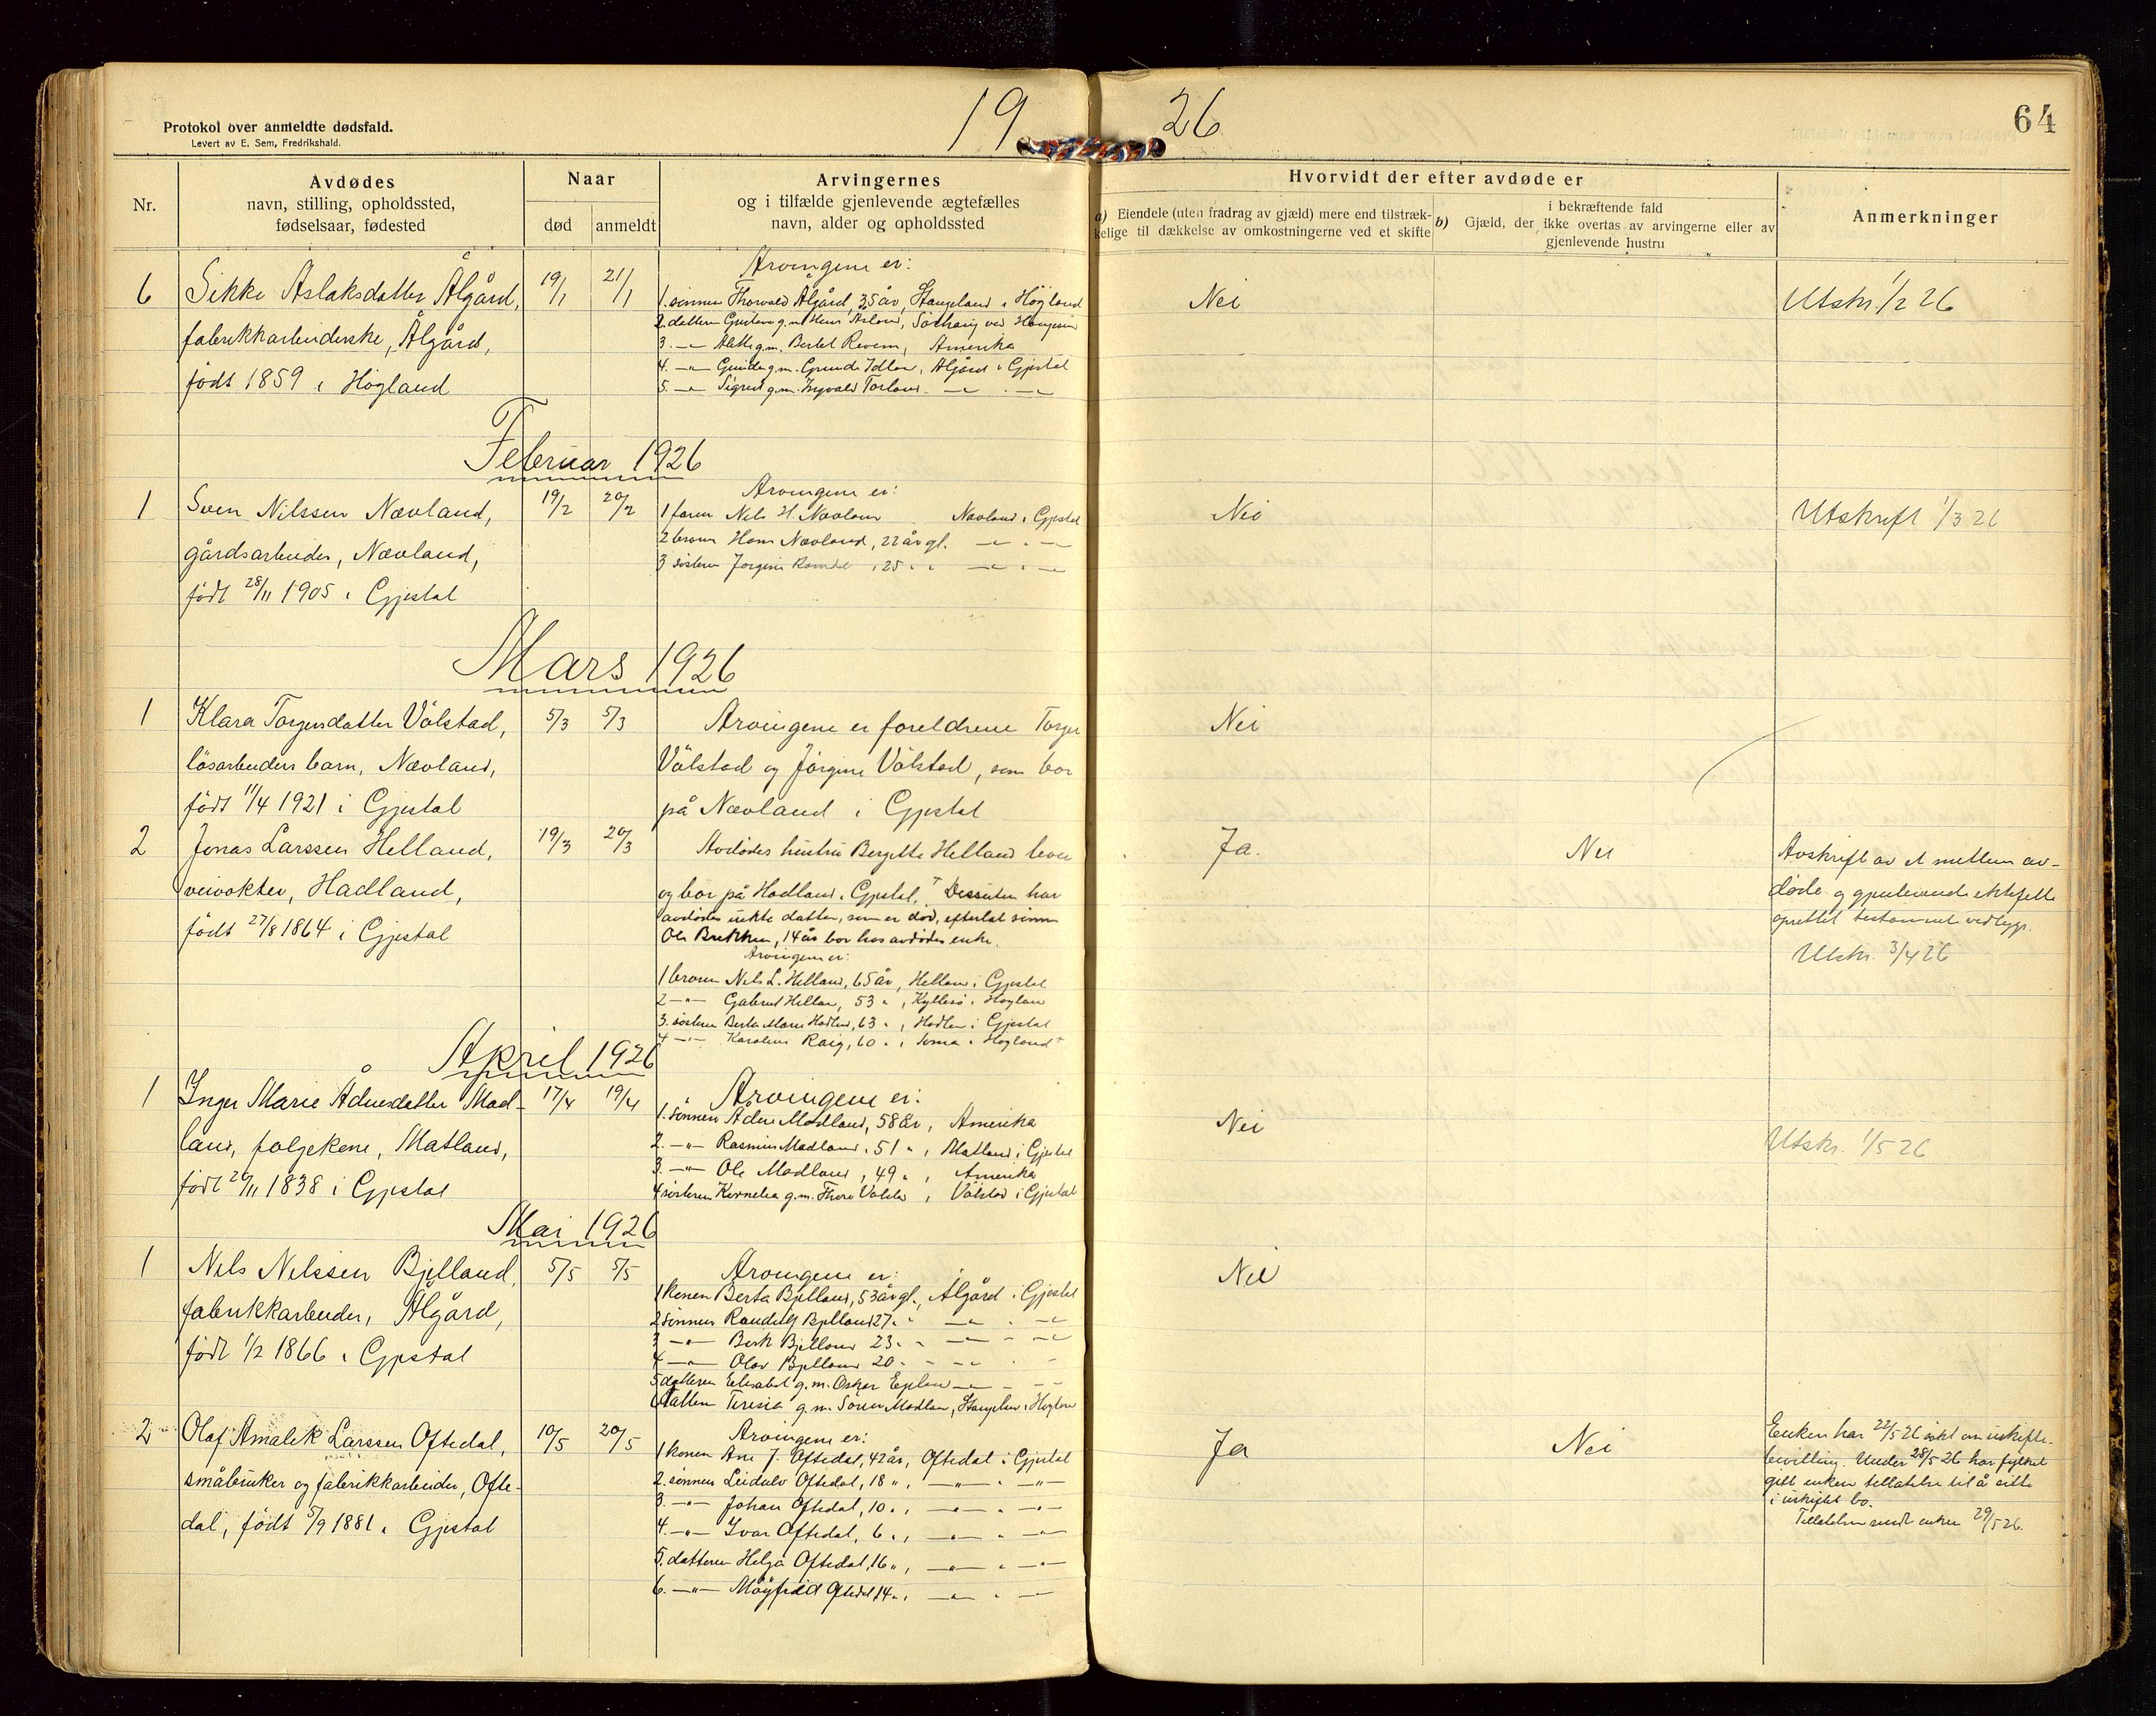 19 26
64
Protokol over anmeldte dødsfald.
Levert av E. Sem, Fredrikshald.
Nr.
Avdødes
navn, stilling, opholdssted,
fødselsaar, fødested
Naar
død
anmeldt
Arvingernes
og i tilfælde gjenlevende ægtefælles
navn, alder og opholdssted
Hvorvidt der efter avdøde er
a) Eiendele (uten fradrag av gjæld) mere end tilstræk-
kelige til dækkelse av omkostningerne ved et skifte
i bekræftende fald
b) Gjæld, der ikke overtas av arvingerne eller av
gjenlevende hustru
Anmerkninger
6 Sikke Aslaksdatter Ålgård, 19/1 21/1
fabrikkarbeiderske, Ålgård,
født 1859 i Høgland
Arvingene er:
1. sønnen Thorvald Ålgård, 35 år, Stangeland i Høgland
2. datteren g.m.
3. -"- g.m. Bertel Revem, Amerika
4. -"- g.m. Gunder Idland, Ålgård i Gjestal
5. -"- Sigrid g.m. Ingvald Torland -"- . -"-
Nei
Utskr. 1/2 26
Februar 1926
1 Sven Nilssen Nævland, 19/2 20/2
gårdsarbeider, Nævland,
født 28/11 1905 i Gjestal
Arvingene er:
1 faren Nils H. Nævland Nævland i Gjestal
2 broren Hans Nævland, 22 år gl. -"- . -"-
3 søsteren Jørgine , 25 " " -"- . -"-
Nei
Utskrift 1/3 26
Mars 1926
1 Klara Torgersdatter Vølstad, 5/3 5/3
løsarbeiders barn, Nævland,
født 11/4 1921 i Gjestal
Arvingene er foreldrene Torger
Vølstad og Jørgine Vølstad, som bor
på Nævland i Gjestal
Nei
2 Jonas Larssen Helland, 19/3 20/3
veivokter, Hadland,
født 27/8 1864 i Gjestal
Avdødes hustru Bergitte Helland lever
og bor på Hadland i Gjestal. Dessuten har
avdødes datter, som er død, efterlat sønn
Ole Brekken, 14 år bor hos avdødes enke.
Arvingene er:
1 broren Nils L. Helland, 65 år, Helland i Gjestal
2 -"- Gabriel Helland, 53 " , Kyllesø i Høgland
3. søsteren Berta Marie Hadland, 63 " , Hadland i Gjestal
4 -"- Karoline Raig, 60 " , Soma i Høgland
Ja.
Nei
Avskrift av et mellem av-
døde og gjenlevende ektefelle
oprettet testament vedlegges.
Utskr. 3/4 26
April 1926
1 Inger Marie Ådnesdatter Mad- 17/4 19/4
land, folgekone, Matland,
født 26/11 1838 i Gjestal
Arvingene er:
1. sønnen Ådne Madland, 58 år, Amerika
2. -"- Rasmus Madland, 51 " , Matland i Gjestal
3. -"- Ole Madland, 49 " , Amerika
4 søsteren Kornelia g.m. Thore Vølstad, Vølstad i Gjestal
Nei
Utskr. 1/5 26
Mai 1926
1 Nils Nilssen Bjelland, 5/5 5/5
fabrikkarbeider, Ålgård,
født 1/2 1866 i Gjestal
Arvingene er:
1 konen Berta Bjelland, 53 år gl., Ålgård i Gjestal
2 sønnen Randulf Bjelland 27 " " -"- . -"-
3 -"- Bjelland 23 " " -"- " -"-
4 -"- Olav Bjelland 20 " " -"- . -
5 datteren Elisabet g.m. Oskar -"- - --
6 datteren Teresia g.m. Søren Madland, Stangeland i Høgland
Nei
2 Olaf Amalek Larssen Oftedal, 10/5 20/5
småbruker og fabrikkarbeider, Ofte-
dal, født 5/9 1881 i Gjestal
Arvingene er:
1 konen Ane J. Oftedal, 42 år, Oftedal i Gjestal
2. sønnen Leidulv Oftedal, 18 " , -"- " -"-
3. -"- Johan Oftedal, 10 " , -"- " -"-
4. -"- Ivar Oftedal, 6 " , -"- " -"-
5. datteren Helga Oftedal, 16 " , -"- " -"-
6. -"- Møyfrid Oftedal, 14 " , -"- " -"-
Ja
Nei
Enken har 22/5 26 søkt om uskifte-
bevilling. Under 28/5 26 har fylket
gitt enken tillatelse til å sitte
i uskiftet bo.
Tillatelsen sendt enken 29/5 26.